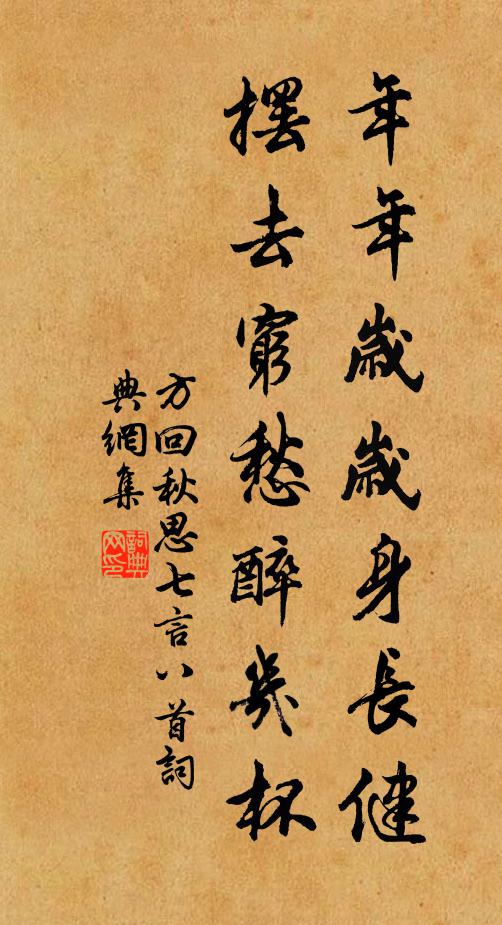 年年歲歲身長健
擺去窮愁醉幾杯
方回秋思七言八首詞
典網集
詞典
网印